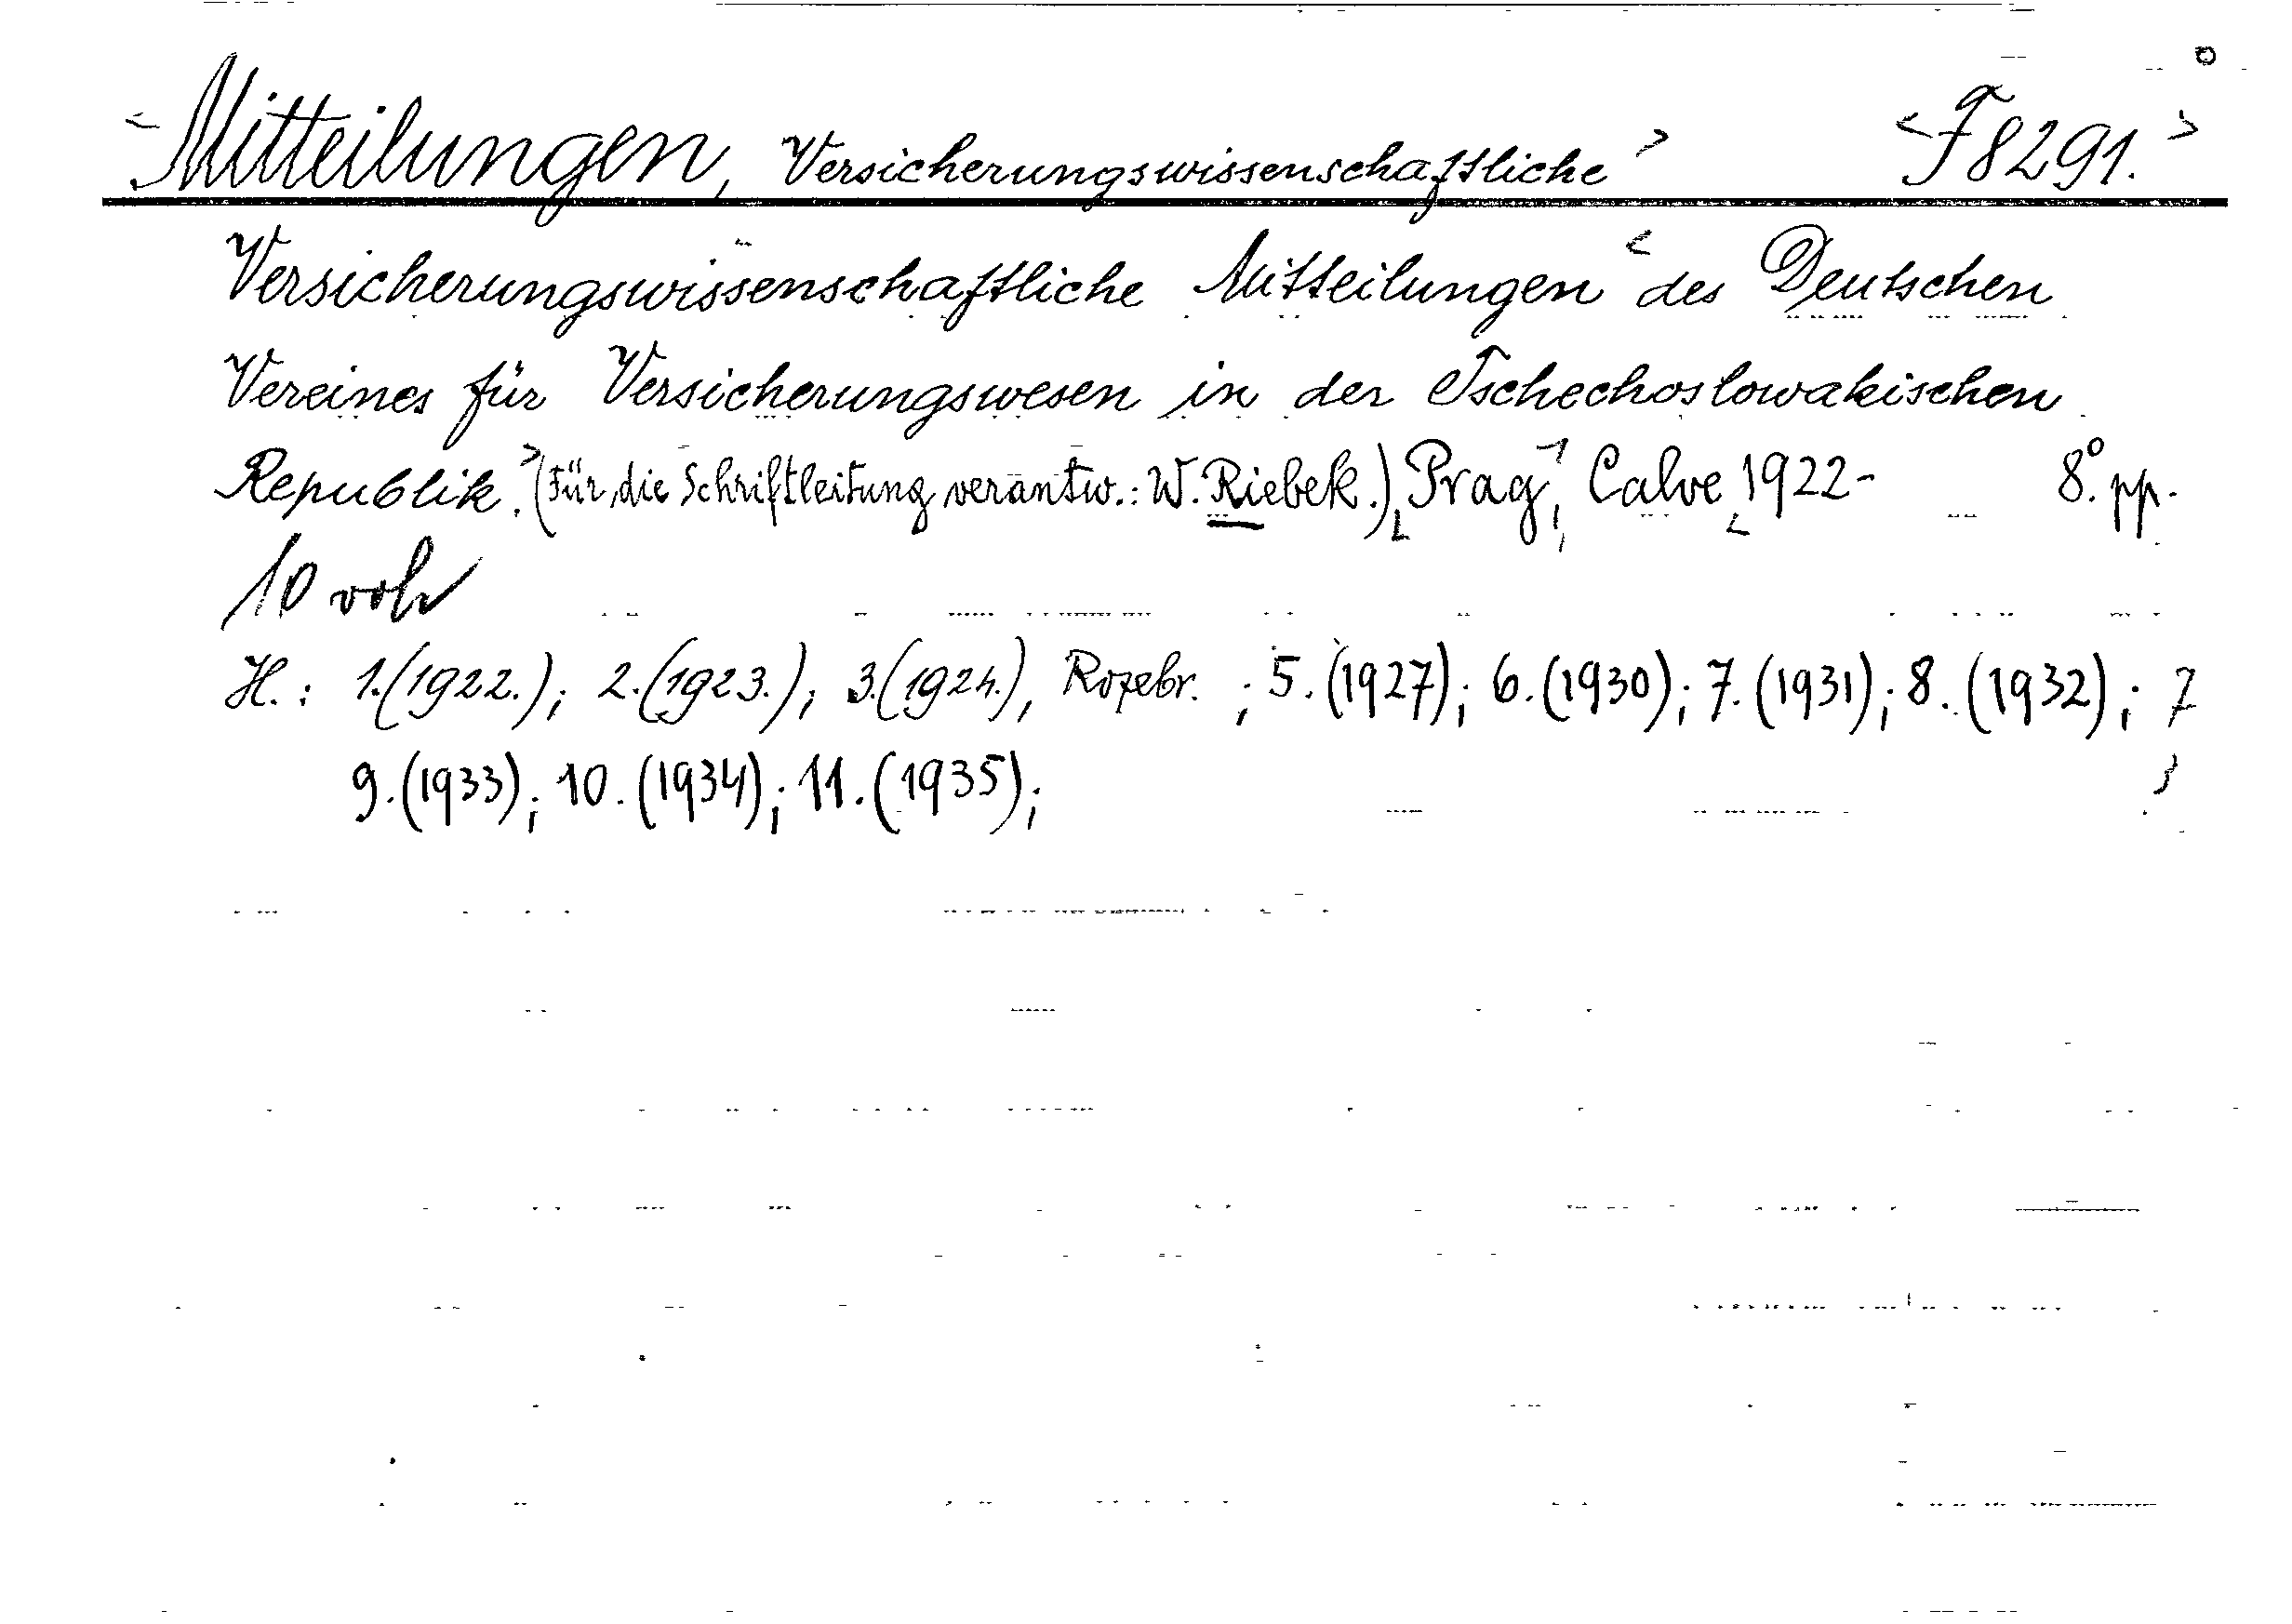 <Mitteilungen, Versicherungswissenschaftliche> <F 8291.>
Versicherungswissenschaftliche Mitteilungen <des Deutschen
Vereines für Versicherungswesen in der Tschechoslowakischen
Republik.> (Für die Schriftleitung verantw.: W. Riebek.) Prag, Calve 1922- 8°. pp.
10 vol
H.: 1.(1922.); 2.(1923.); 3.(1924.), Rozebr. ; 5.(1927); 6.(1930); 7.(1931); 8.(1932);
9.(1933); 10.(1934); 11.(1935);